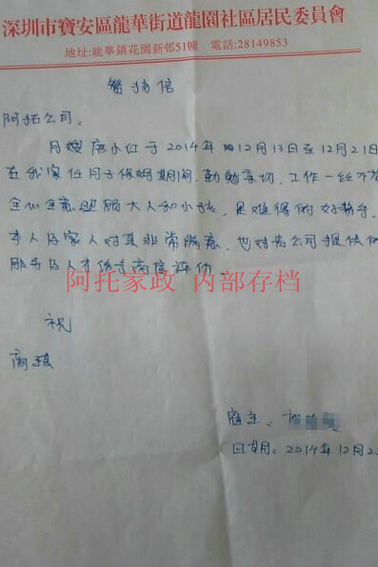 深圳市寶安區龍華街道龍園社區居民委員會
地址:龍華鎮花園新邨51幢 電話:28149853
赞扬信
阿拓公司:
月嫂 小红于2014年12月13日至12月21日
在我家任月子保姆期间,勤勉亲切,工作一丝不苟
全心全意照顾大人和小孩,是难得的好帮手。
本人及家人对其非常满意,也对贵公司提供的
服务及人才给予高度评价
阿托家政 内部存档
祝
商祺
雇主:
日期:2014年12月2